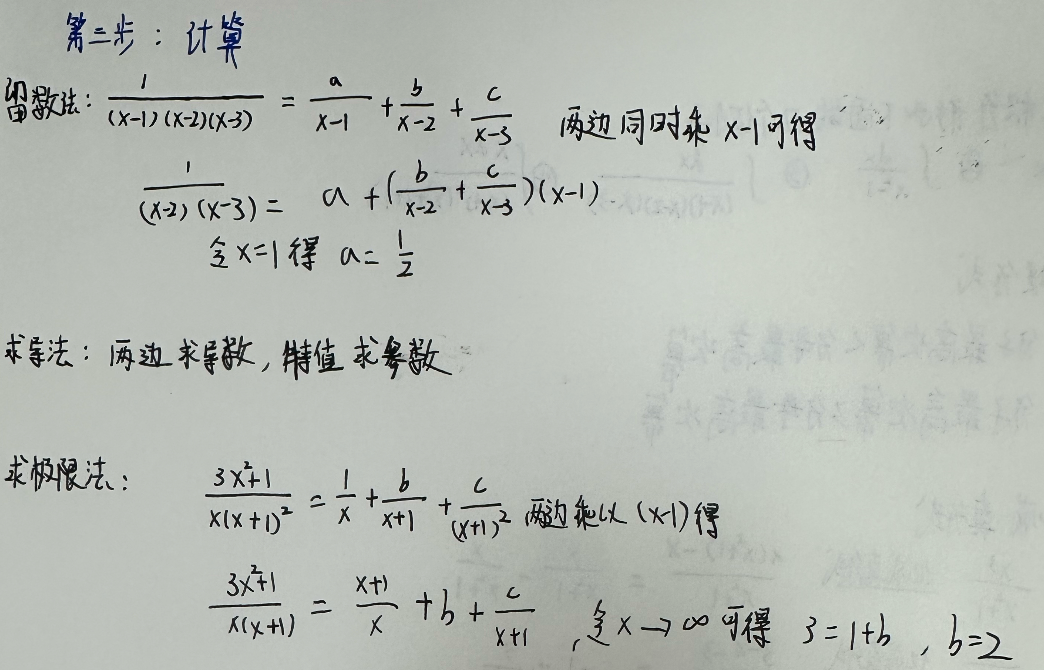 第三步：计算
留数法: 1/((x-1)(x-2)(x-3)) = a/(x-1) + b/(x-2) + c/(x-3) 两边同时乘 x-1可得
1/((x-2)(x-3)) = a + (b/(x-2) + c/(x-3))(x-1)
令x=1得 a=1/2
求导法: 两边求导数, 特值求参数
求极限法: (3x²+1)/(x(x+1)²) = 1/x + b/(x+1) + c/(x+1)² 两边乘以 (x-1)得
(3x²+1)/(x(x+1)) = (x+1)/x + b + c/(x+1) , 令x→∞可得 3=1+b , b=2